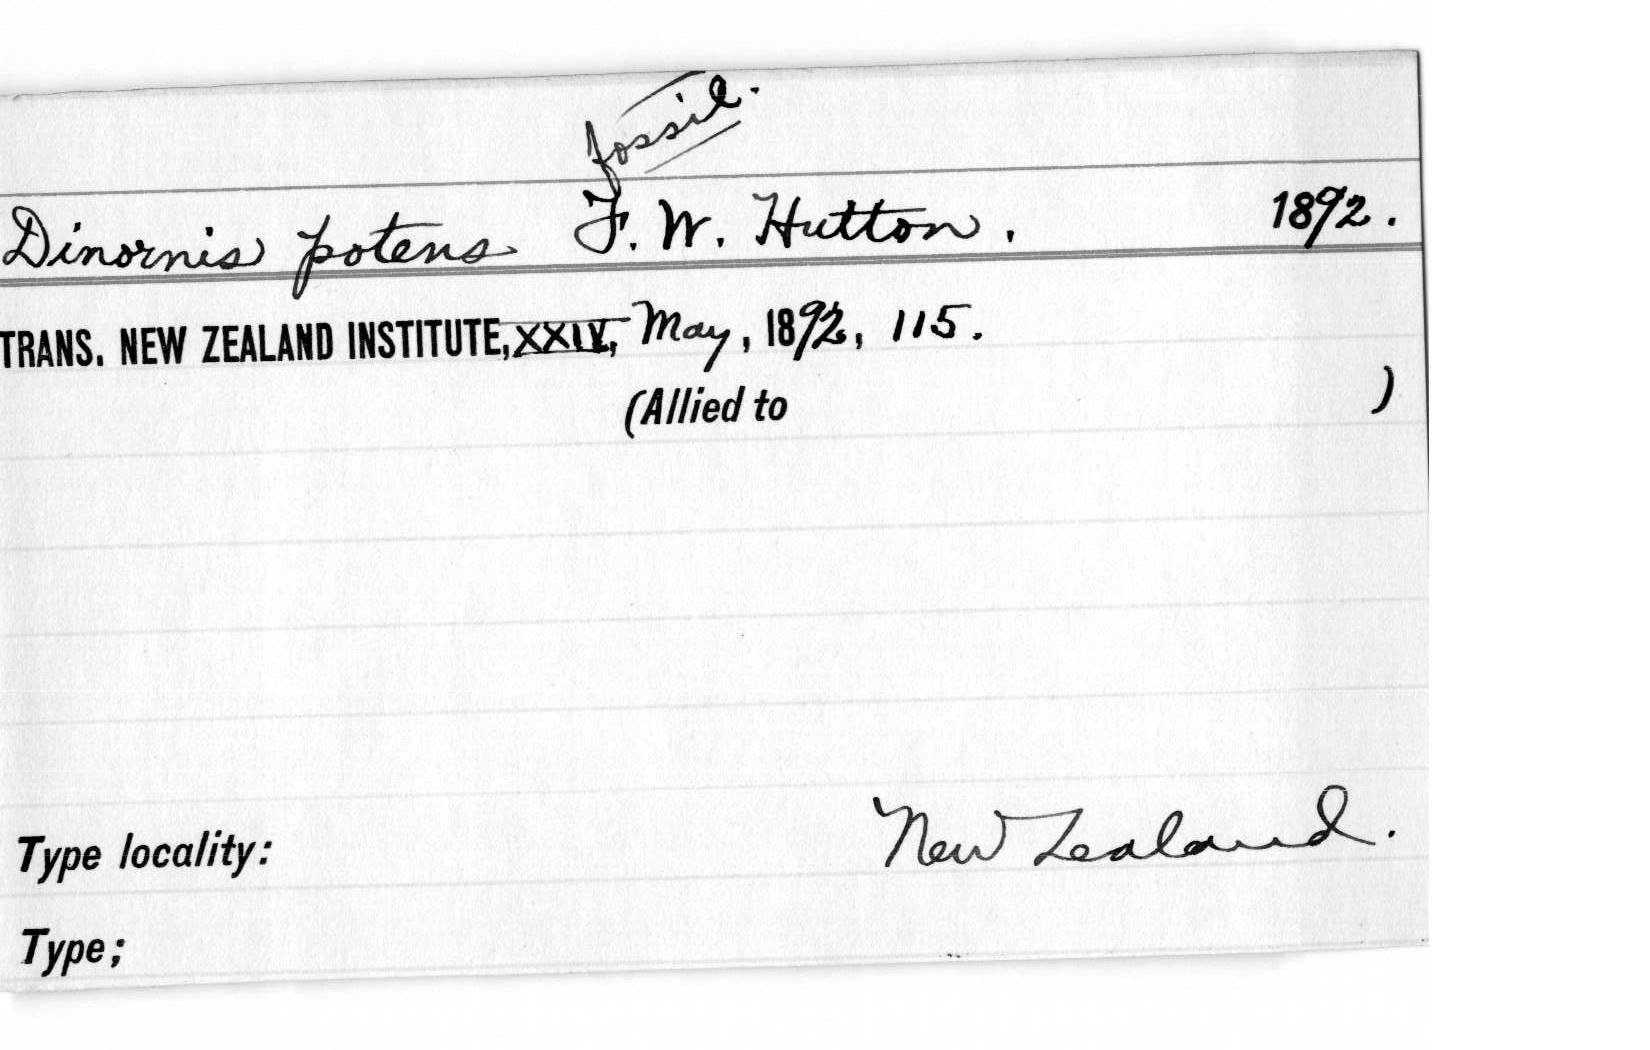 fossil.
Dinornis potens F. W. Hutton. 1892.
TRANS. NEW ZEALAND INSTITUTE, XXIV, May, 1892, 115.
(Allied to )
Type locality: New Zealand.
Type;